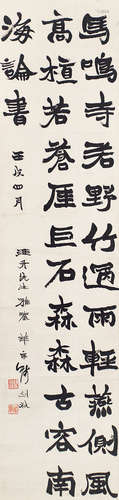 馬鳴寺若野竹過雨輕燕側風
高植若蒼厓巨石森森古容南
海論書
壬戌四月
先生雅鑒